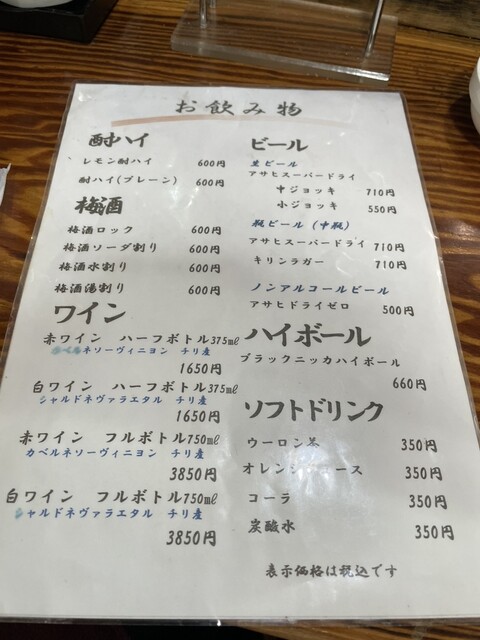 お飲み物
酎ハイ
レモン酎ハイ 600円
酎ハイ(プレーン) 600円
梅酒
梅酒ロック 600円
梅酒ソーダ割り 600円
梅酒水割り 600円
梅酒湯割り 600円
ワイン
赤ワイン ハーフボトル375㎖
カベルネソーヴィニヨン チリ産
1650円
白ワイン ハーフボトル375㎖
シャルドネヴァラエタル チリ産
1650円
赤ワイン フルボトル750㎖
カベルネソーヴィニヨン チリ産
3850円
白ワイン フルボトル750㎖
シャルドネヴァラエタル チリ産
3850円
ビール
生ビール
アサヒスーパードライ
中ジョッキ 710円
小ジョッキ 550円
瓶ビール (中瓶)
アサヒスーパードライ 710円
キリンラガー 710円
ノンアルコールビール
アサヒドライゼロ 500円
ハイボール
ブラックニッカハイボール
660円
ソフトドリンク
ウーロン茶 350円
オレンジジュース 350円
コーラ 350円
炭酸水 350円
表示価格は税込です